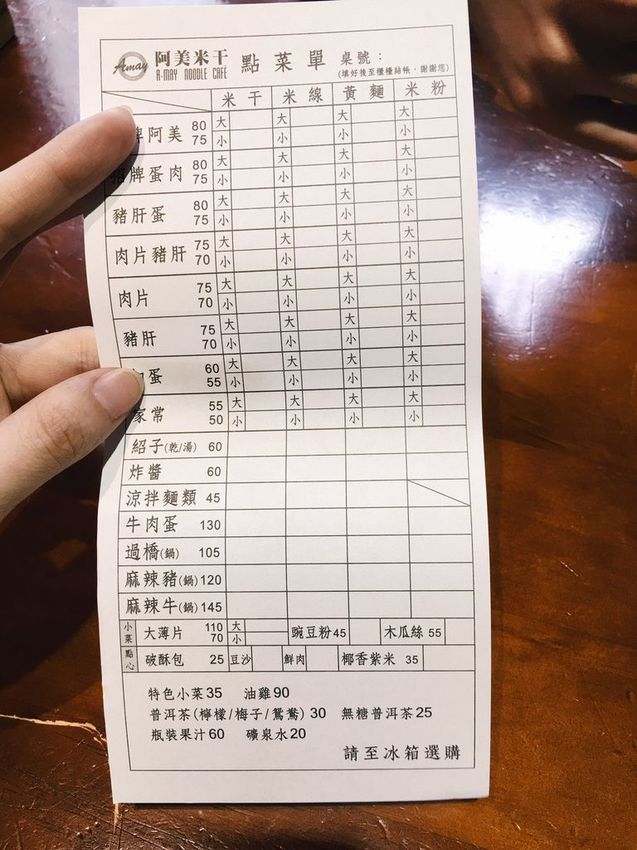 Amay 阿美米干 點菜單 桌號：
A-MAY NOODLE CAFÉ (填好後至櫃檯結帳，謝謝您)
米干 米線 黃麵 米粉
牌阿美 80 大 大 大 大
75 小 小 小 小
招牌蛋肉 80 大 大 大 大
75 小 小 小 小
豬肝蛋 80 大 大 大 大
75 小 小 小 小
肉片豬肝 75 大 大 大 大
70 小 小 小 小
肉片 75 大 大 大 大
70 小 小 小 小
豬肝 75 大 大 大 大
70 小 小 小 小
蛋 60 大 大 大 大
55 小 小 小 小
家常 55 大 大 大 大
50 小 小 小 小
紹子(乾/湯) 60
炸醬 60
涼拌麵類 45
牛肉蛋 130
過橋(鍋) 105
麻辣豬(鍋) 120
麻辣牛(鍋) 145
小菜 大薄片 110 大 70 小 豌豆粉 45 木瓜絲 55
點心 破酥包 25 豆沙 鮮肉 椰香紫米 35
特色小菜35 油雞90
普洱茶(檸檬/梅子/鴛鴦) 30 無糖普洱茶25
瓶裝果汁60 礦泉水20
請至冰箱選購